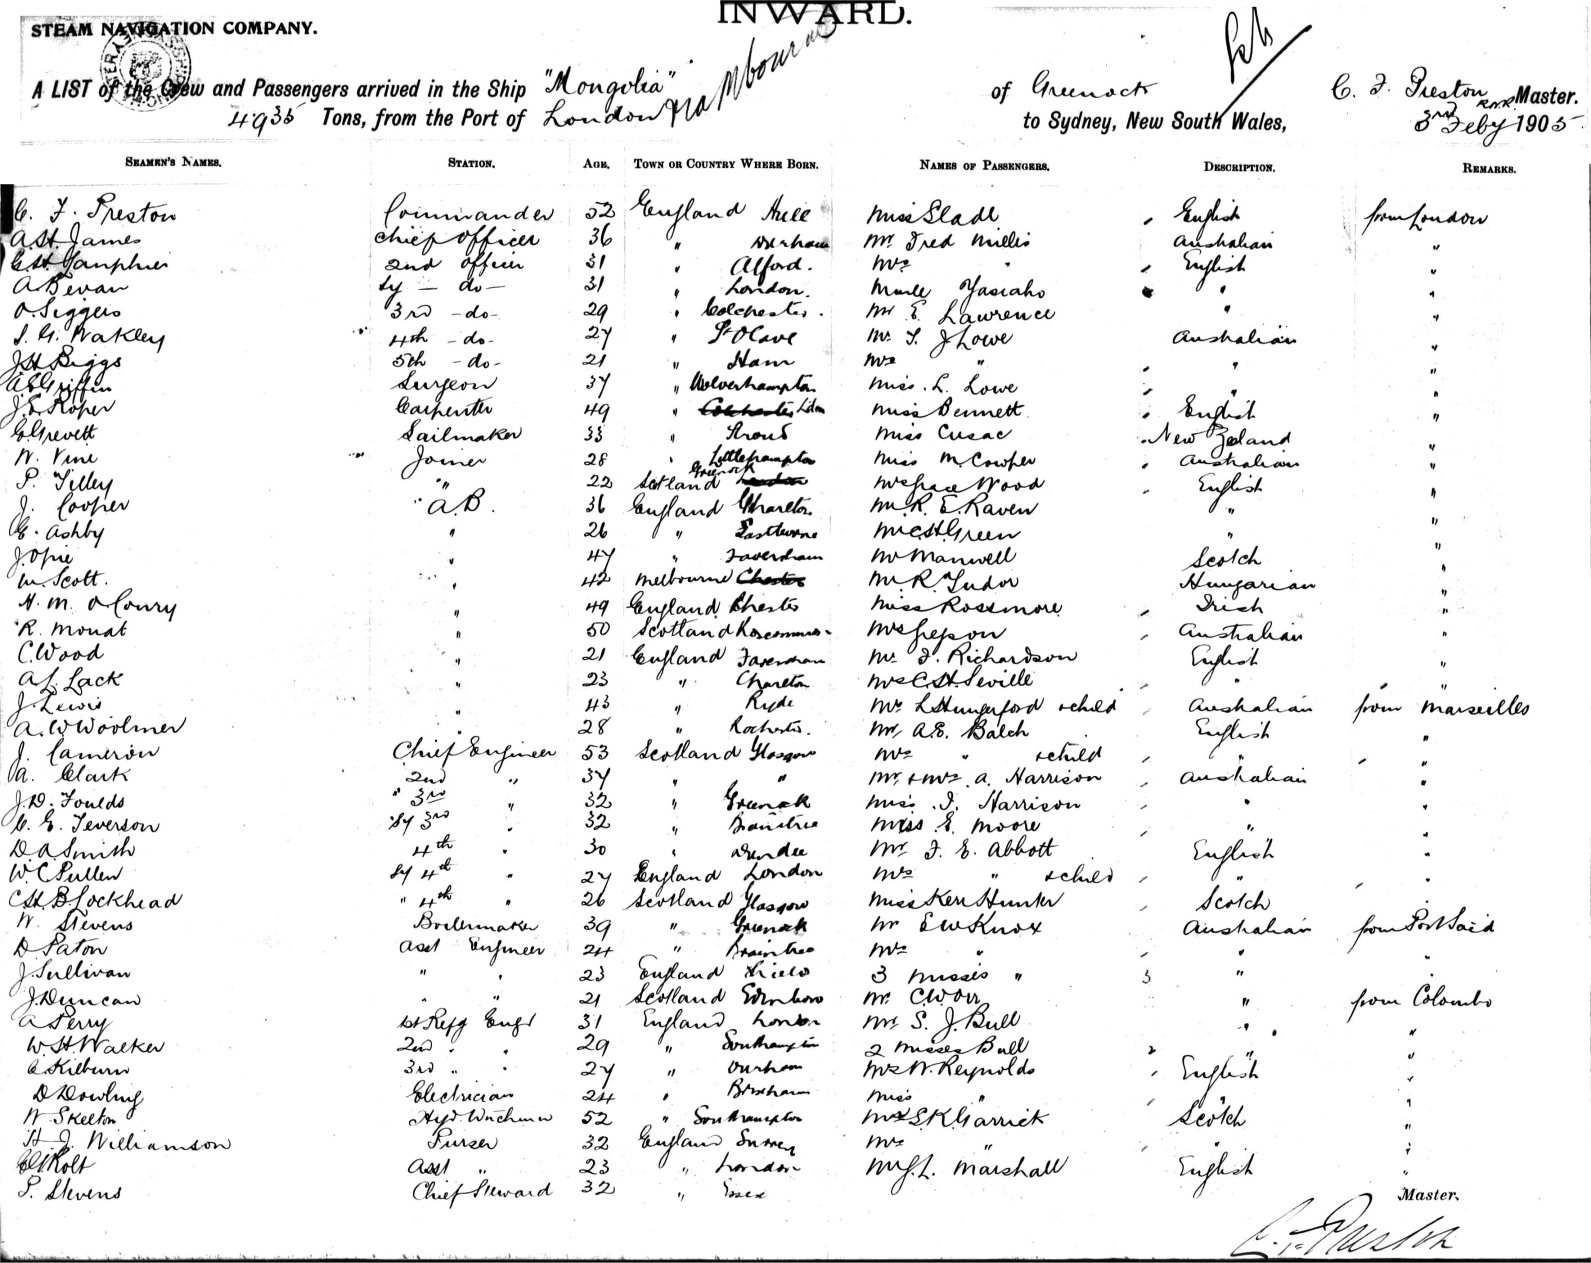 INWARD.
STEAM NAVIGATION COMPANY.
A LIST of the Crew and Passengers arrived in the Ship "Mongolia" of Greenock C. F. Preston R.N.R. Master.
4935 Tons, from the Port of London via Melbourne to Sydney, New South Wales, 3rd Feby 1905
SEAMEN'S NAMES. STATION. AGE. TOWN OR COUNTRY WHERE BORN. NAMES OF PASSENGERS. DESCRIPTION. REMARKS.
C. F. Preston Commander 52 England Hull Miss Slade English from London
A. St. James Chief Officer 36 " Durham Mr Fred Millis Australian "
2nd Officer 31 " Alford. Mrs " English "
A Bevan Sy - do - 31 " London. " "
O Siggers 3rd - do - 29 " Colchester. Mr E. Lawrence " "
S. G. Wakley 4th - do - 27 " St Olave Mr T. J Lowe Australian "
J H Biggs 5th - do - 21 " Ham Mrs " " "
A E Griffin Surgeon 37 " Wolverhampton Miss. L. Lowe " "
J. E. Roper Carpenter 49 " Colchester Ldn Miss Bennett English "
G Grevett Sailmaker 33 " Stroud Miss Cusac New Zealand "
W. Vine Joiner 28 " Littlehampton Miss M. Cowper Australian "
P. Tilley " 22 Scotland Greenock London Mrs Grace Wood English "
J. Cooper A.B. 36 England Charlton Mr. R. E. Raven " "
E. Ashby " 26 " Eastbourne Mr C H Green " "
J. Opie " 47 " Faversham Mr Manwell Scotch "
W. Scott. " 42 Melbourne Chester Mr R. Tudor Hungarian "
H. M. O'Conry " 49 England Chester Miss Rossmore Irish "
R. Mouat " 50 Scotland Mrs Jepson Australian "
C. Wood " 21 England Faversham Mr F. Richardson English "
A L. Lack " 23 " Charlton Mrs C. H. Seville " "
J. Lewis " 43 " Ryde Mrs L Hungerford & child Australian from Marseilles
A. W Woolmer " 28 " Rochester. Mr, A. E. Balch English "
J. Cameron Chief Engineer 53 Scotland Glasgow Mrs " & child " "
A. Clark 2nd " 37 " " Mr. & Mrs A. Harrison Australian "
J. D. Foulds 3rd " 32 " Greenock Miss. I. Harrison " "
C. E. Teverson Sy 3rd " 32 " Braintree Miss. E. Moore " "
D. A Smith 4th " 30 " Dundee Mr F. E. Abbott English "
W. C Pullen Sy 4th " 27 England London Mrs " & child " "
C H. B Lockhead " 4th " 26 Scotland Glasgow Miss Kerr Hunter Scotch "
W. Stevens Boilermaker 39 " Greenock Mr E W Knox Australian from Port Said
D Paton Asst Engineer 24 " Braintree Mrs " " "
J. Sullivan " " 23 England Shields 3 Misses " 3 " "
J. Duncan " " 21 Scotland Edinboro Mr. C. W Orr " from Colombo
A Perry 1st Refg Engr 31 England London Mr S. J. Bull " "
W. H. Walker 2nd " " 29 " Southampton 2 Misses Bull 2 " "
A Kilburn 3rd " " 27 " Durham Mrs W. Reynolds English "
D Dowling Electrician 24 " Brixham Miss " " "
W Skelton Hyd. Winchman 52 " Southampton Mr S. K. Garrick Scotch "
H. J. Williamson Purser 32 England Surrey Mrs " " "
Holt Asst " 23 " London Mr J. L. Marshall English "
P. Stevens Chief Steward 32 " Essex
Master.
C. F. Preston